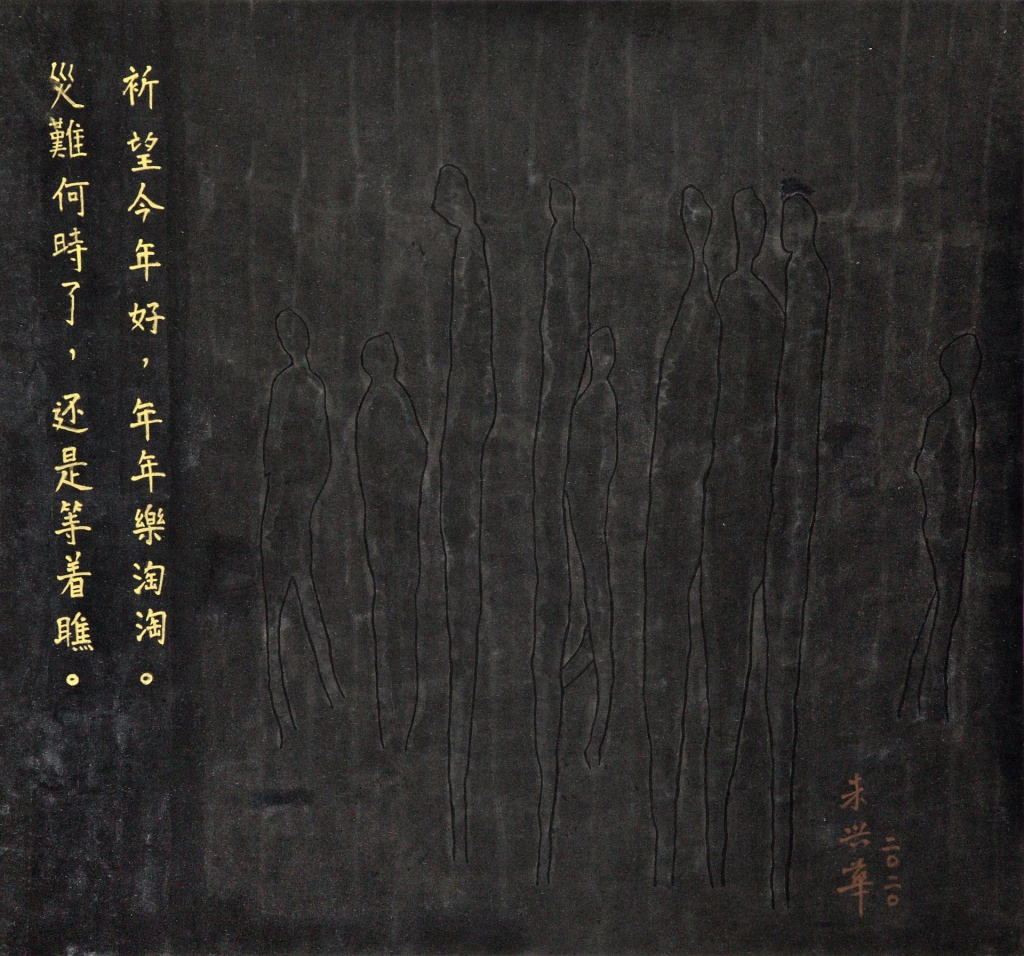 祈望今年好，年年樂淘淘。
災難何時了，还是等着瞧。
二〇二〇
朱兴華